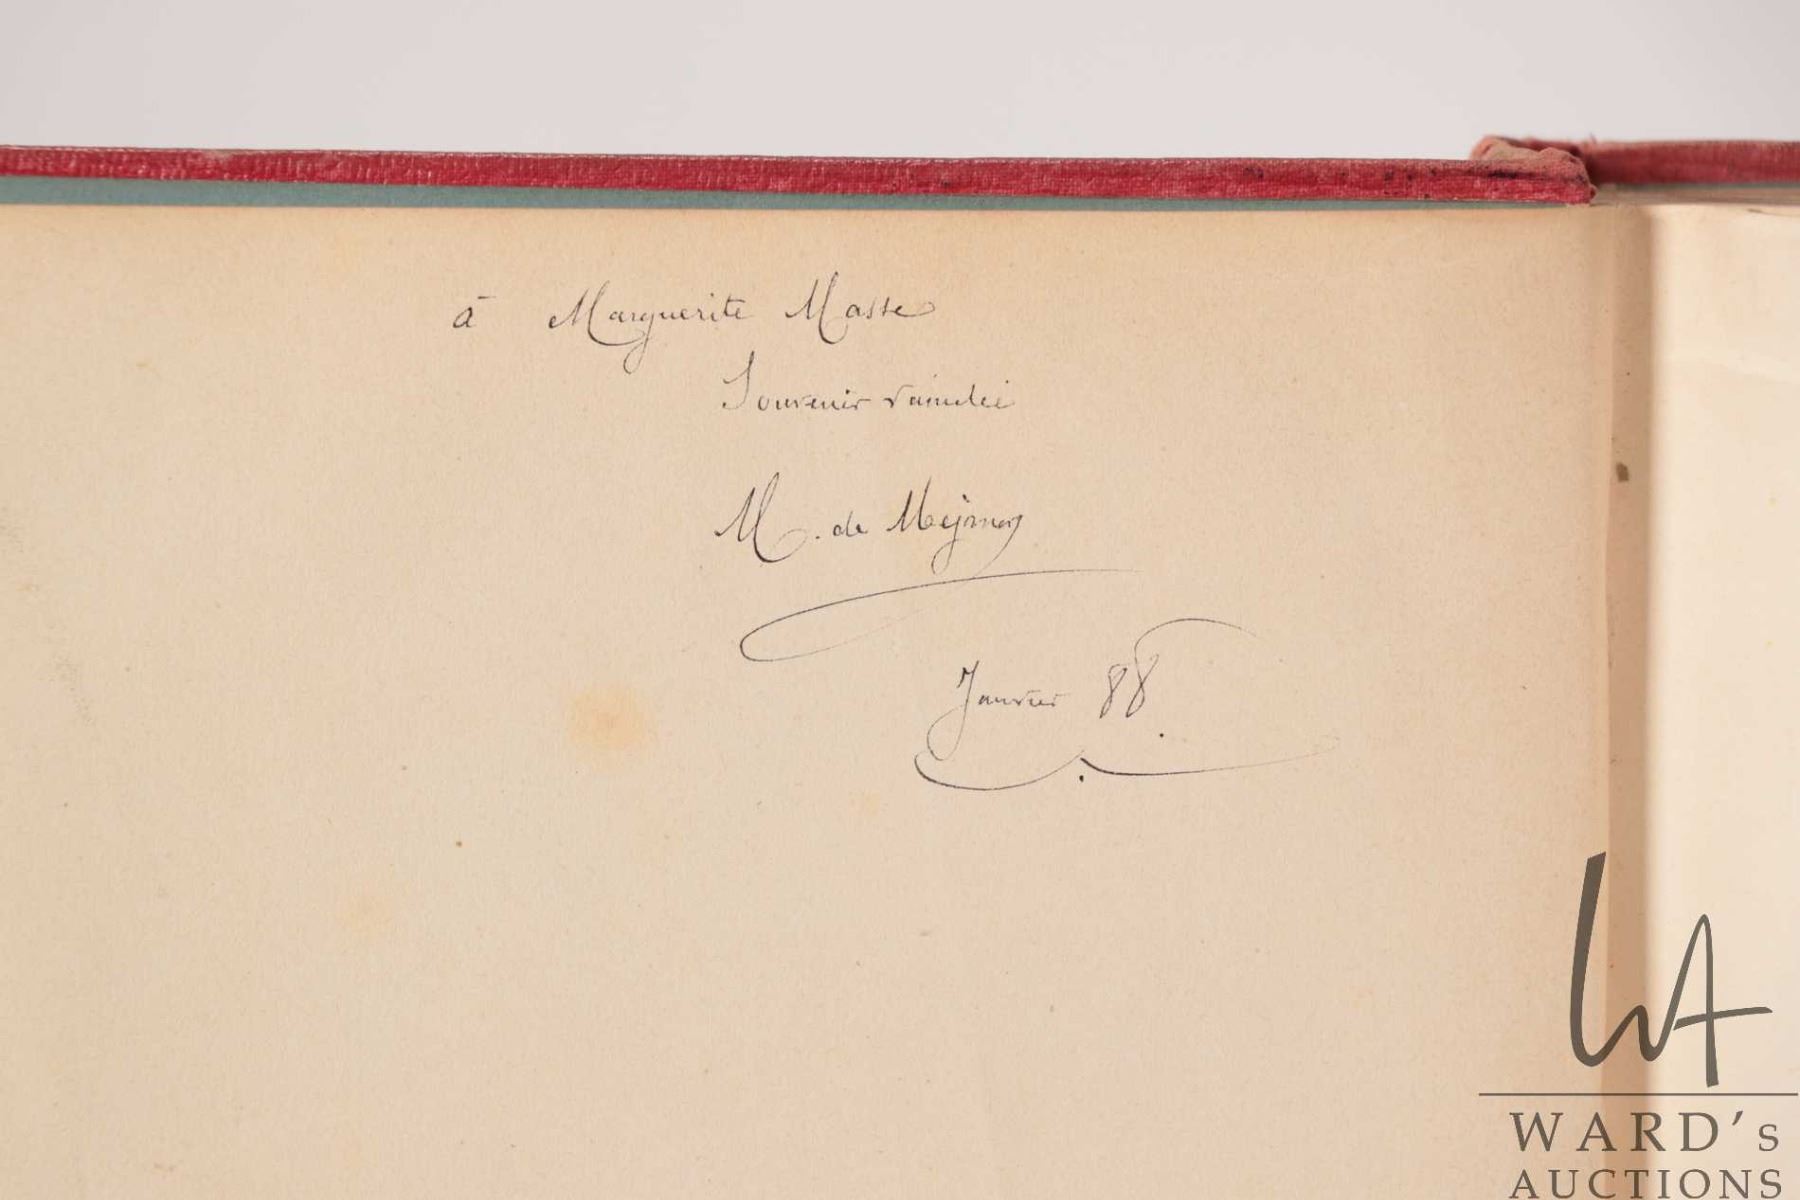 à Marguerite Masse
Souvenir d'amitié
M. de
Janvier 88.
WARD's
AUCTIONS